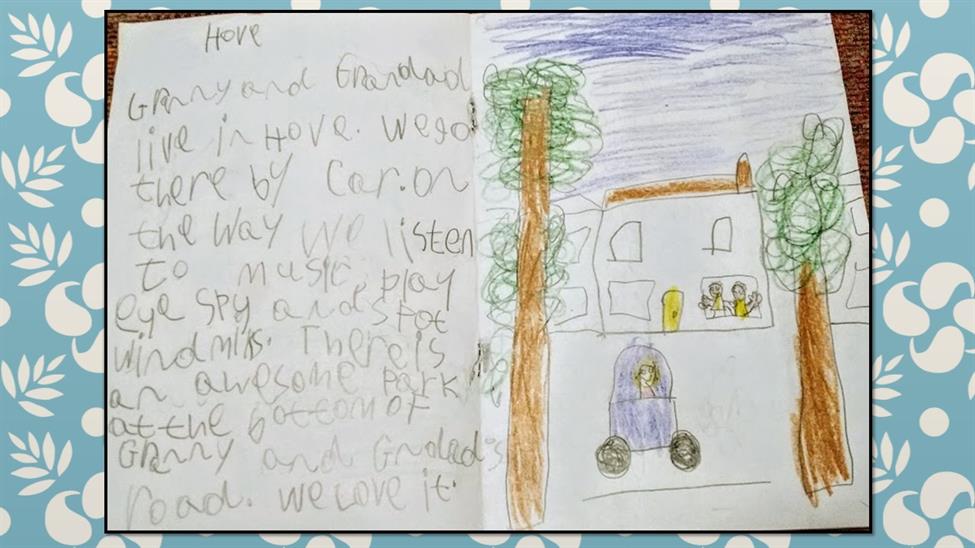 Hove
Granny and Grandad
live in Hove. We go
there by Car. on
the way we listen
to music play
eye spy and spot
windmills. There is
an awesome park
at the bottom of
Granny and Grndad's
road. we love it.